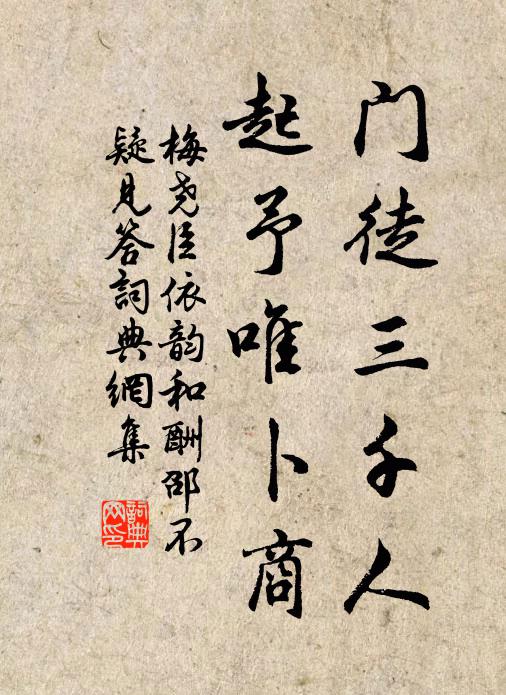 门徒三千人
起予唯卜商
梅尧臣依韵和酬邵不
疑见答词典網集
詞典
网印